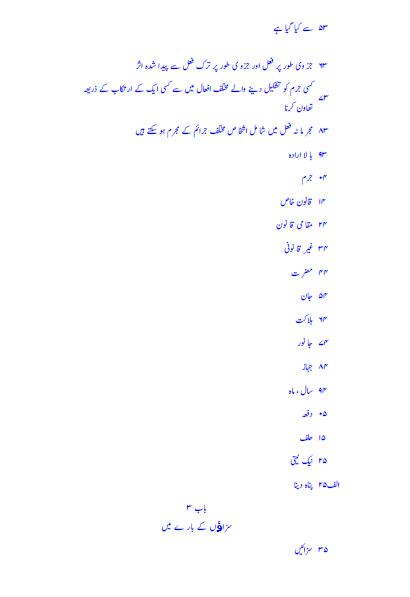 ۵۳ سے کیا گیا ہے
۶۳ جزوی طور پر فعل اور جزوی طور پر ترک فعل سے پیدا شدہ اثر
کسی جرم کو تشکیل دینے والے مختلف افعال میں سے کسی ایک کے ارتکاب کے ذریعہ
۷۳
تعاون کرنا
۸۳ مجرمانہ فعل میں شامل اشخاص مختلف جرائم کے مجرم ہو سکتے ہیں
۹۳ بالارادہ
۰۴ جرم
۱۴ قانون خاص
۲۴ مقامی قانون
۳۴ غیر قانونی
۴۴ مضرت
۵۴ جان
۶۴ ہلاکت
۷۴ جانور
۸۴ جہاز
۹۴ سال، ماہ
۰۵ دفعہ
۱۵ حلف
۲۵ نیک نیتی
الف۲۵ پناہ دینا
باب ۳
سزاؤں کے بارے میں
۳۵ سزائیں